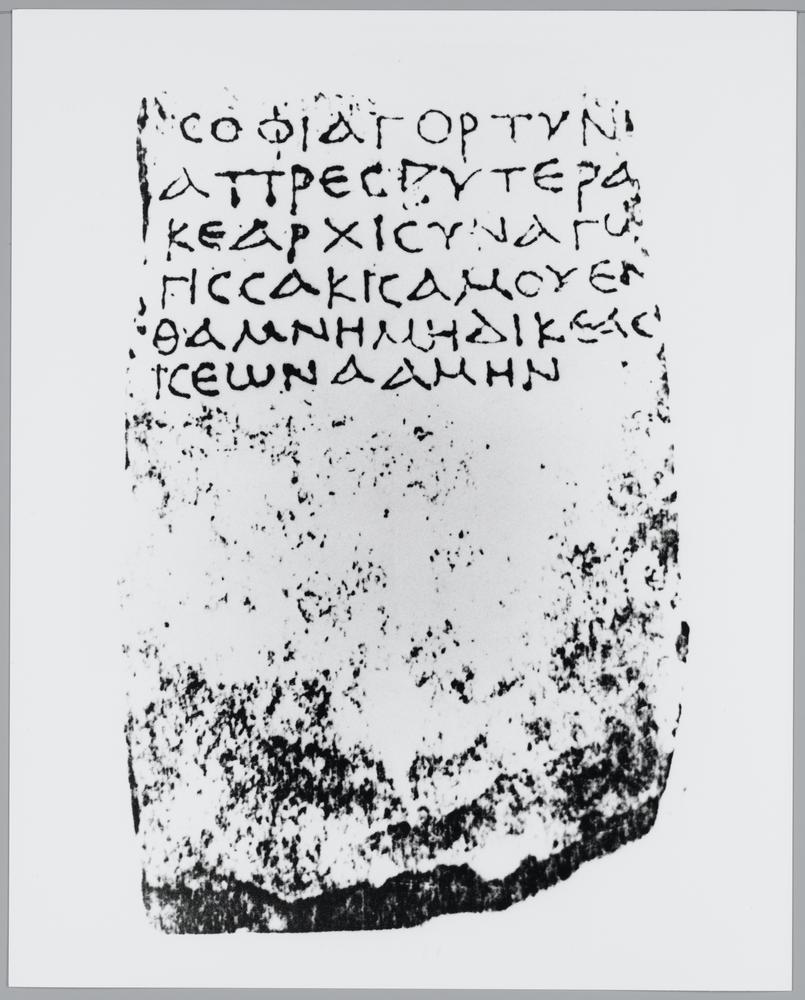 CΟΦΙΑΓΟΡΤΥΝΙ
ΑΠΡΕCΒΥΤΕΡΑ
ΚΕΑΡΧΙCΥΝΑΓΩ
ΓΙCCΑΚΙCΑΜΟΥΕΝ
ΘΑΜΝΗΜΗΔΙΚΕΑC
ΙCΕΩΝΑΑΜΗΝ